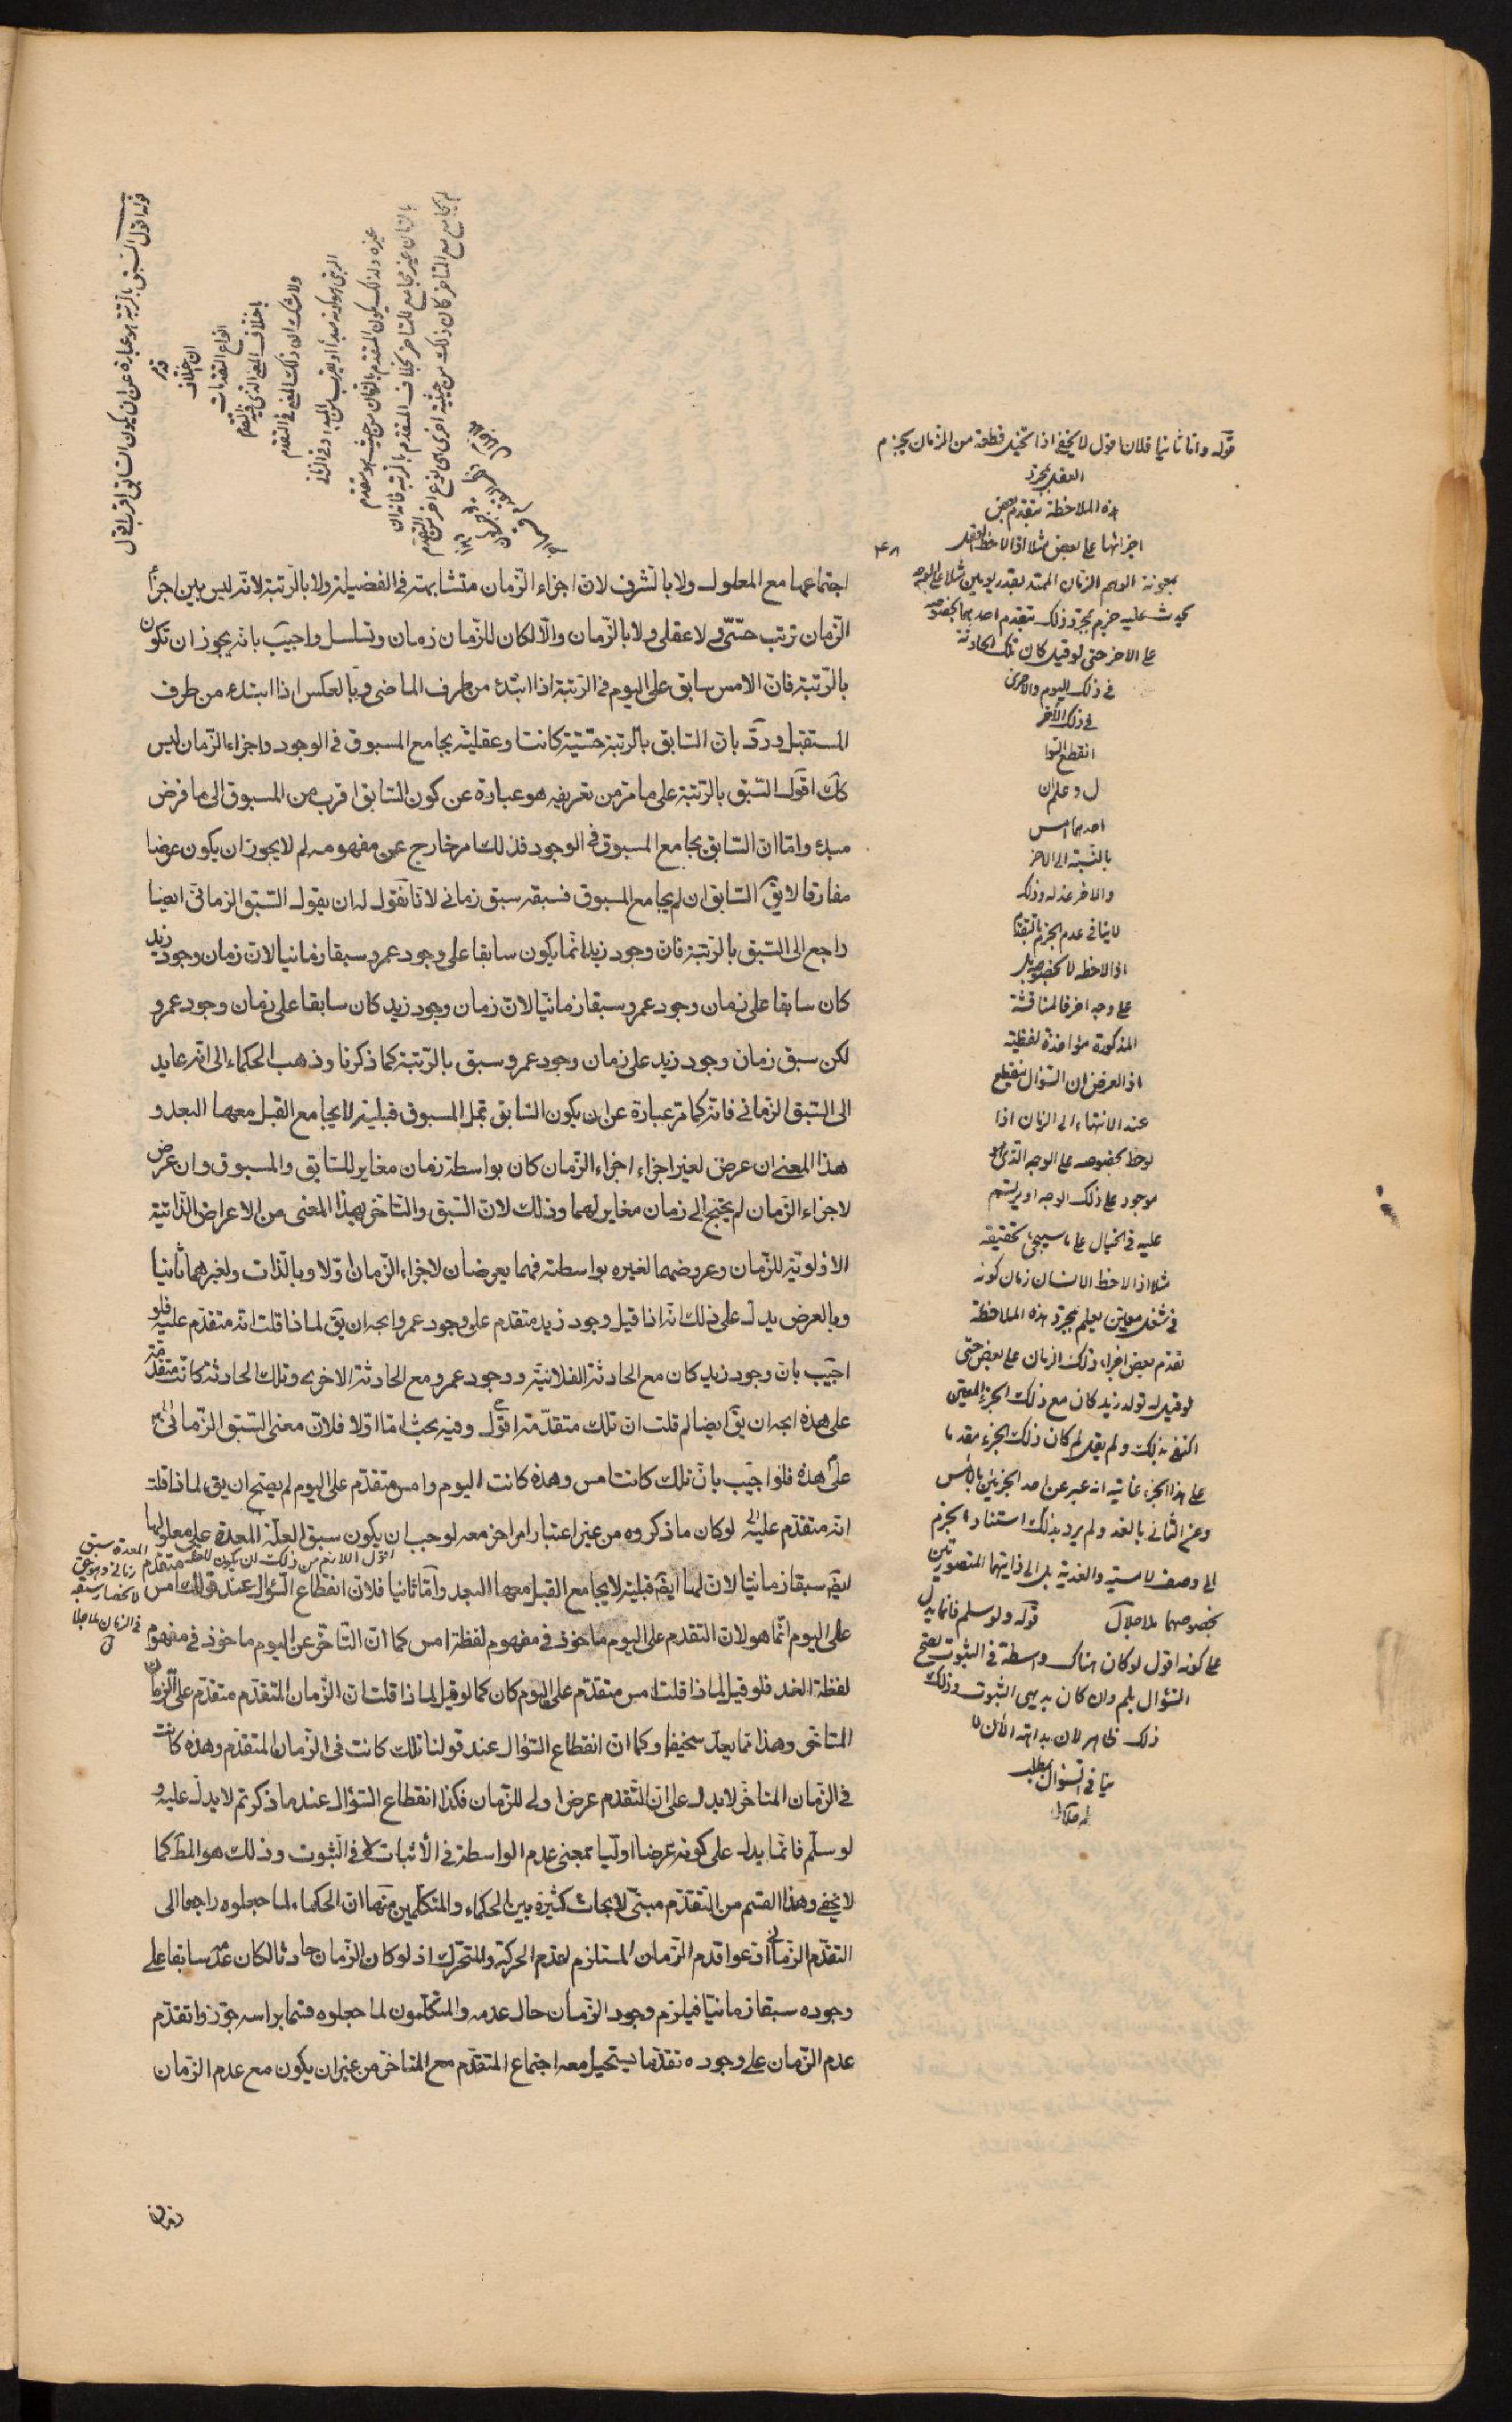 اجتماعهما مع المعلول ولا بالشرف لان اجزاء الزّمان متشابهة فى الفضيلة ولا بالرّتبة لانّه ليس بين اجزأ
الزّمان ترتب حسّىّ ولا عقلى ولا بالزّمان والّا لكان للزّمان زمان وتسلسل واجيب بانّه يجوز ان تكون
بالرّتبة فانّ الامس سابق على اليوم فى الرّتبة اذا ابتدئ من طرف الماضى وبالعكس اذا ابتدئ من طرف
المستقبل وردّ بانّ السّابق بالرّتبة حسّيّة كانت او عقليّة يجامع المسبوق فى الوجود واجزاء الزّمان ليس
كك اقول السّبق بالرّتبة على ما مرّ من تعريفه هو عبارة عن كون السّابق اقرب من المسبوق الى ما فرض
مبدء وامّا انّ السّابق يجامع المسبوق فى الوجود فذلك امر خارج عن مفهومه لم لا يجوز ان يكون عرضا
مفارقا لا يق السّابق ان لم يجامع المسبوق فسبقه سبق زمانى لانّا نقول له ان يقول السّبق الزمانى ايضا
راجع الى السّبق بالرّتبة فانّ وجود زيد انّما يكون سابقا على وجود عمرو سبقا زمانيا لانّ زمان وجود زيد
كان سابقا على زمان وجود عمرو سبقا زمانيّا لانّ زمان وجود زيد كان سابقا على زمان وجود عمرو
لكن سبق زمان وجود زيد على زمان وجود عمرو سبق بالرّتبة كما ذكرنا وذهب الحكماء الى انّه عايد
الى السّبق الزمانى فانّه كما مرّ عبارة عن ان يكون السّابق قبل المسبوق قبليّة لا يجامع القبل معها البعد و
هذا المعنى ان عرض لغير اجزاء اجزاء الزّمان كان بواسطة زمان مغاير للسّابق والمسبوق وان عرض
لاجزاء الزّمان لم يحتج الى زمان مغاير لهما وذلك لانّ السّبق والتّاخّر بهذا المعنى من الاعراض الذّاتيّة
الاوّلويّة للزّمان وعروضهما لغيره بواسطته فهما يعرضان لاجزاء الزّمان اوّلا وبالذّات ولغيرهما ثانيا
وبالعرض يدلّ على ذلك انّه اذا قيل وجود زيد متقدم على وجود عمرو اتجه ان يق لماذا قلت انّه متقدّم عليه فلو
اجيب بانّ وجود زيد كان مع الحادثة الفلانيّة ووجود عمرو مع الحادثة الاخرى وتلك الحادثة كانت متقدّمة
على هذه اتجه ان يق ايضا لم قلت ان تلك متقدّمة اقول وفيه بحث امّا اوّلا فلانّ معنى السّبق الزّمانى
على هذه فلو اجيب بانّ تلك كانت امس وهذه كانت اليوم وامس متقدّم على اليوم لم يصحّ ان يق لماذا قلت
انّه متقدّم عليه لو كان ما ذكروه من غير اعتبار امر اخر معه لوجب ان يكون سبق العلّة المعدة على معلولها
ايضّ سبقا زمانيّا لانّ لها ايضّ قبليّة لا يجامع القبل معها البعد وامّا ثانيا فلانّ انقطاع السّؤال عند قولك امس متقدّم
على اليوم انّما هو لان التقدم على اليوم ماخوذ فى مفهوم لفظة امس كما انّ التّاخّر عن اليوم ماخوذ فى مفهوم
لفظة الغد فلو قيل لماذا قلت امس متقدّم على اليوم كان كما لو قيل لماذا قلت انّ الزّمان المتقدّم متقدّم على الزّمان
المتاخّر وهذا ممّا يعدّ سخيفا وكما انّ انقطاع السّؤال عند قولنا تلك كانت فى الزّمان المتقدّم وهذه كانت
فى الزّمان المتاخّر لا يدلّ على انّ التّقدم عرض اولى للزّمان فكذا انقطاع السّؤال عند ما ذكرتم لا يدلّ عليه و
لو سلّم فانّما يدلّ على كونه عرضا اوّليّا بمعنى عدم الواسطة فى الاثبات لا فى الثبوت وذلك هو المط كما
لا يخفى وهذا القسم من التّقدّم مبنىّ لابحاث كثيرة بين الحكماء والمتكلّمين منها انّ الحكماء لما جعلوه راجعا الى
التقدّم الزّمانى ادّعوا قدم الزّمان المستلزم لقدم الحركة والمتحرّك اذ لو كان الزّمان حادثا لكان عدمه سابقا على
وجوده سبقا زمانيّا فيلزم وجود الزّمان حال عدمه والمتكلّمون لما جعلوه قسما براسه جوّزوا تقدّم
عدم الزّمان على وجوده تقدّما يستحيل معه اجتماع المتقدّم مع المتاخّر من غير ان يكون مع عدم الزّمان
زمان
قوله وامّا ثانيا فلان اقول لا يخفى اذا تخيّل قطعة من الزمان يجزم
العقل بمجرّد
هذه الملاحظة بتقدم بعض
اجزائها على بعض مثلا اذا لاحظ العقل
بمعونة الوهم الزمان الممتد بقدر يومين مثلا على الوجه
عليه جزم بمجرّد ذلك بتقدم احدهما بخصوصه
على الاخر حتى لو قيل كان تلك الحادثة
فى ذلك اليوم والاخرى
فى ذلك الاخر
انقطع السّؤا
ل وعلم ان
احدهما امس
بالنسبة الى الاخر
والاخر غد له وذلك
لا ينافى عدم الجزم بالتقدّم
اذا لاحظه لا بخصوصه بل
على وجه اخر فالمناقشة
المذكورة مؤاخذة لفظيّة
اذ الغرض ان السّؤال ينقطع
عند الانتهاء الى الزمان اذا
لوحظ بخصوصه على الوجه الذى هو
موجود على ذلك الوجه او يرتسم
عليه فى الخيال على ما سيجىء تحقيقه
مثلا اذا لاحظ الانسان زمان كونه
فى شغل معيّن يعلم بمجرّد هذه الملاحظة
تقدّم بعض اجزاء ذلك الزمان على بعض حتى
لو قيل له تولد زيد كان مع ذلك الجزء المعيّن
اكتفى بذلك ولم يقل لم كان ذلك الجزء مقدما
على هذا الجزء غايته انه عبر عن احد الجزئين بالامس
وعن الثانى بالغد ولم يرد بذلك استناد الجزم
الى وصف الامسيّة والغديّة بل الى ذاتيهما المتصورتين
بخصوصهما ملا جلال قوله ولو سلم فانما يدل
على كونه اقول لو كان هناك واسطة فى الثبوت يصح
السّؤال بلم وان كان بديهى الثبوت وذلك
ذلك ظاهر لان بداهة الان لا
ينافى السّؤال بطلب
قوله اقول السّبق بالرّتبة هو عبارة عن ان يكون السّابق اقرب اقول
قد مر
ان اختلاف
انواع التقدمات
باختلاف المعنى الذى فيه التقدّم
ولا شك ان ذلك المعنى فى التقدّم
الرتبى هو كونه مبدأ او اقرب من المبدء وفى الزمانى
غيره ولذلك يكون المتقدّم بالزمان من حيث هو متقدّم
بالزمان غير مجامع للمتاخر بخلاف المتقدم بالرتبة فانه ان
لم يجامع مع المتاخر كان ذلك من حيثية اخرى هى نوع اخر من التقدّم